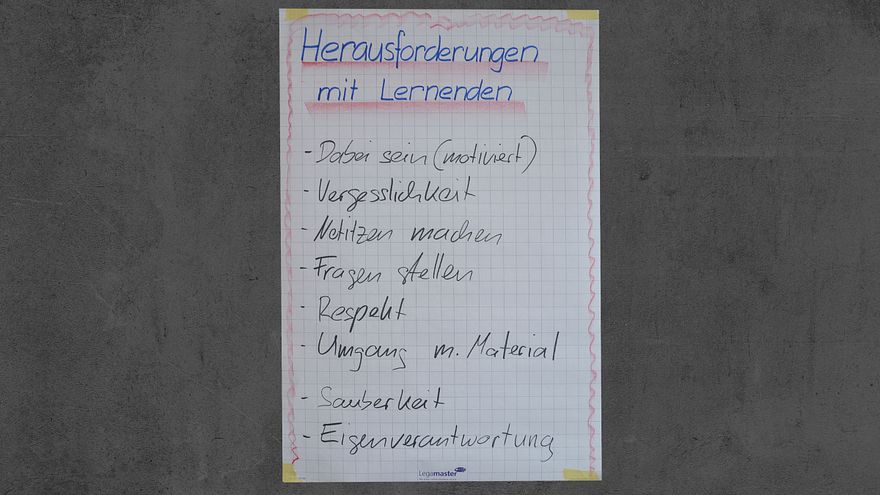 Herausforderungen
mit Lernenden
- Dabei sein (motiviert)
- Vergesslichkeit
- Notitzen machen
- Fragen stellen
- Respekt
- Umgang m. Material
- Sauberkeit
- Eigenverantwortung
Legamaster